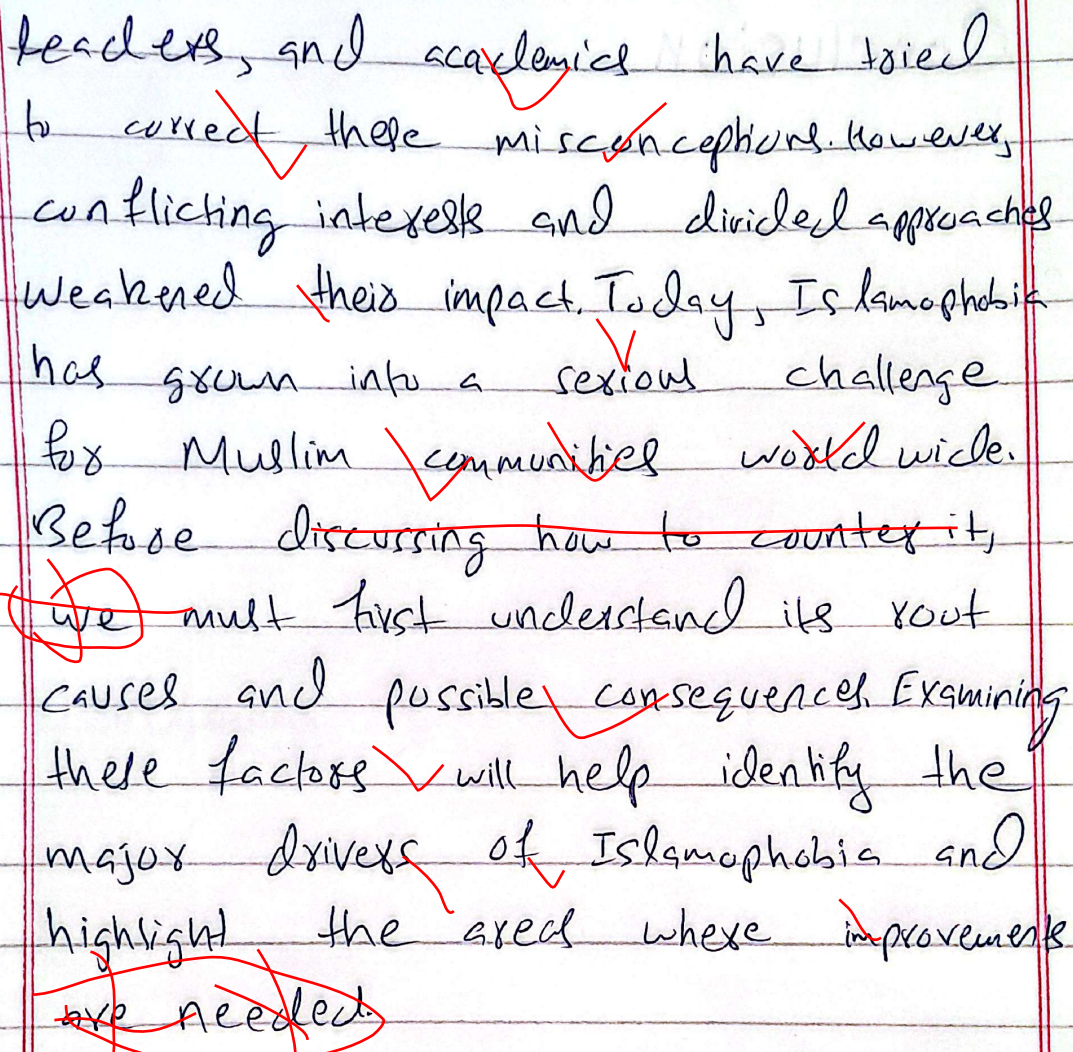 leaders, and academics have tried
to correct these misconceptions. However,
conflicting interests and divided approaches
weakened their impact. Today, Islamophobia
has grown into a serious challenge
for Muslim communities worldwide.
Before discussing how to counter it,
we must first understand its root
causes and possible consequences. Examining
these factors will help identify the
major drivers of Islamophobia and
highlight the areas where improvements
are needed.